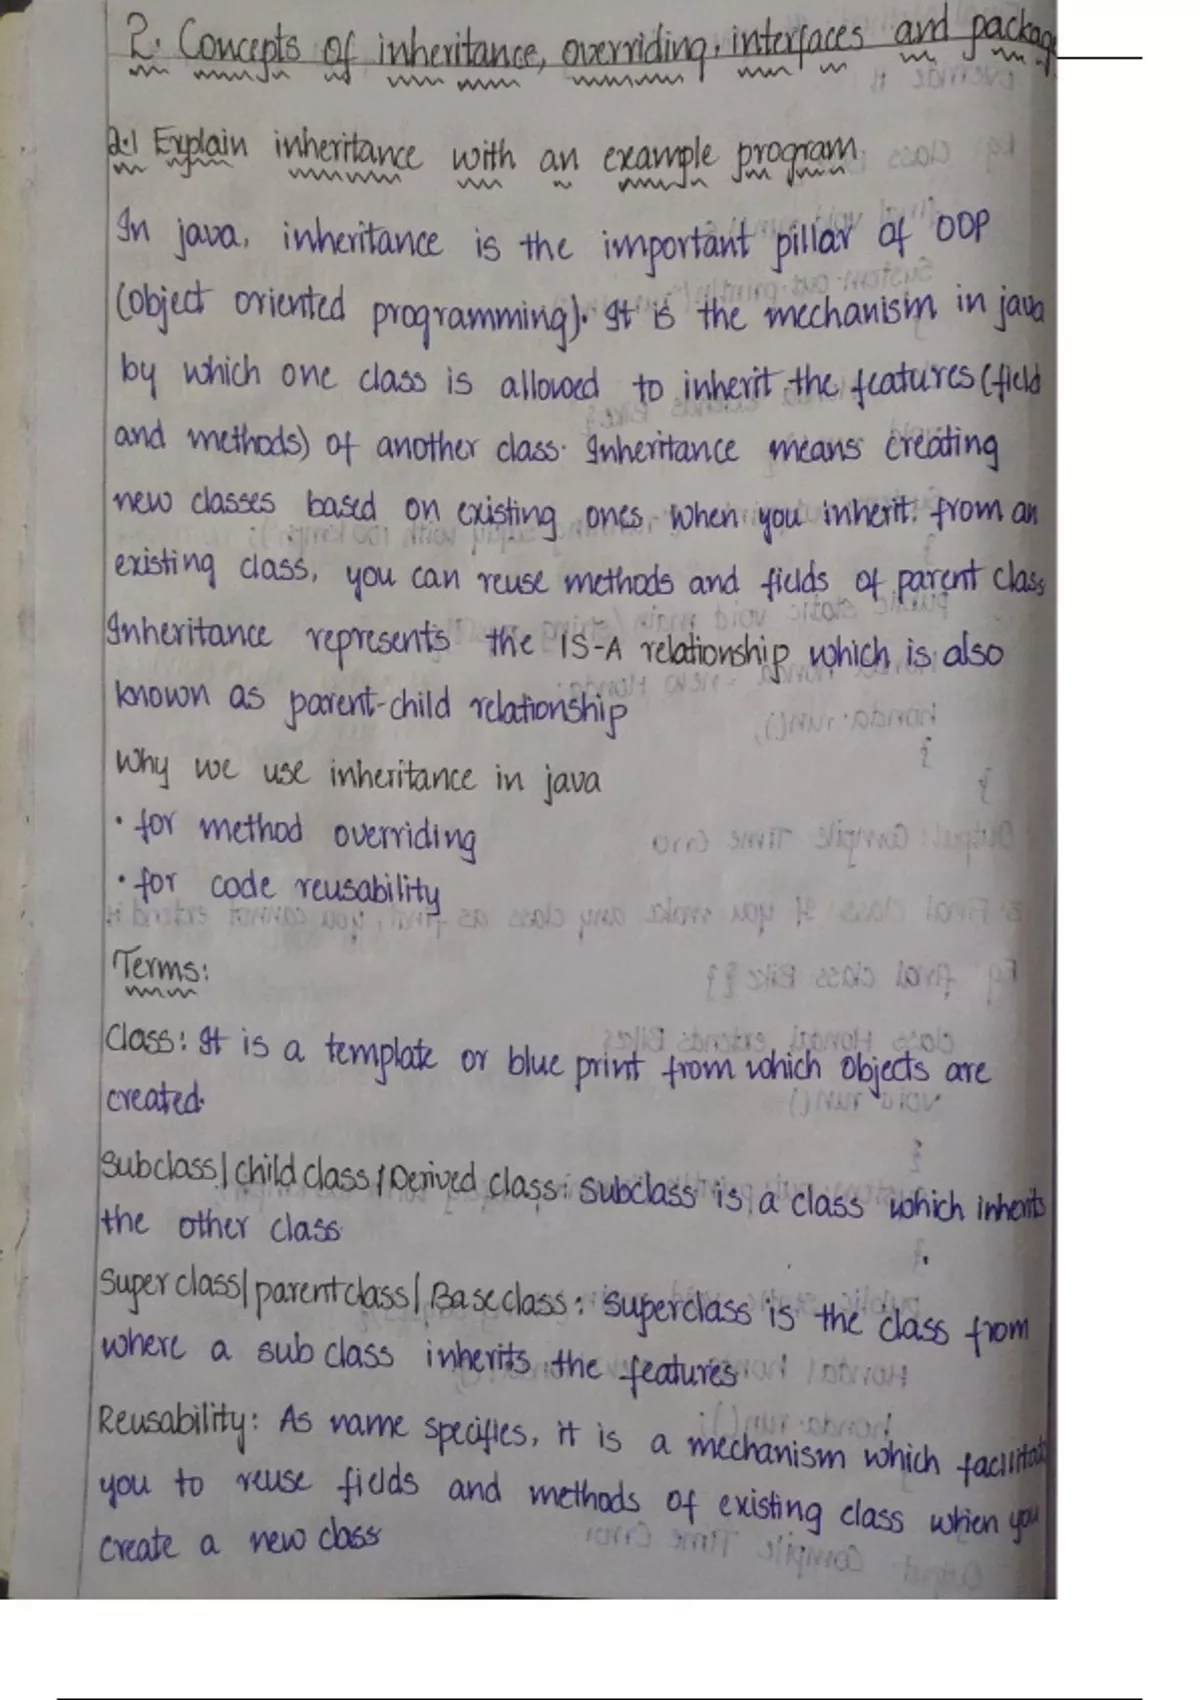 2. Concepts of inheritance, overriding, interfaces and package
2.1 Explain inheritance with an example program.
In java, inheritance is the important pillar of OOP
(object oriented programming). It is the mechanism in java
by which one class is allowed to inherit the features (field
and methods) of another class. Inheritance means creating
new classes based on existing ones. when you inherit from an
existing class, you can reuse methods and fields of parent class
Inheritance represents the IS-A relationship which is also
known as parent-child relationship
Why we use inheritance in java
• for method overriding
• for code reusability
Terms:
Class: It is a template or blue print from which objects are
created.
Subclass/child class/Derived class: Subclass is a class which inherits
the other class
Super class/parent class/Base class: Superclass is the class from
where a sub class inherits the features
Reusability: As name specifies, it is a mechanism which facilitat
you to reuse fields and methods of existing class when you
create a new class